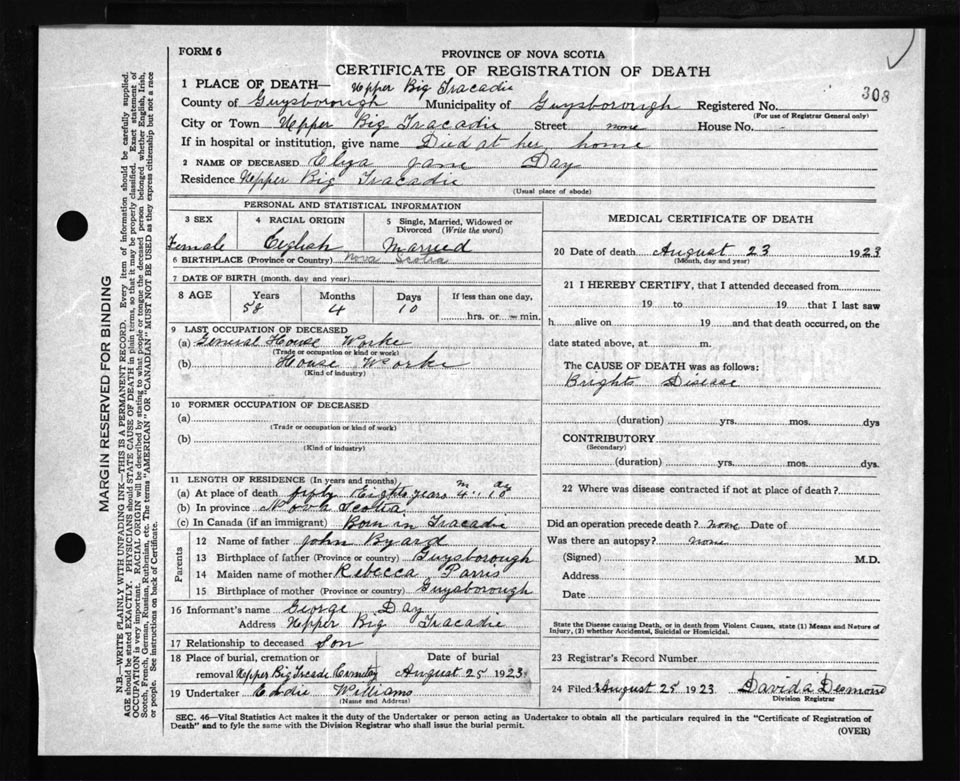 FORM 6
PROVINCE OF NOVA SCOTIA
CERTIFICATE OF REGISTRATION OF DEATH
308
1 PLACE OF DEATH— Upper Big Tracadie
County of Guysborough Municipality of Guysborough Registered No.
(For use of Registrar General only)
City or Town Upper Big Tracadie Street none House No.
If in hospital or institution, give name Died at her home
2 NAME OF DECEASED Eliza Jane Day
Residence Upper Big Tracadie
(Usual place of abode)
PERSONAL AND STATISTICAL INFORMATION
3 SEX 4 RACIAL ORIGIN 5 Single, Married, Widowed or Divorced (Write the word)
Female English Married
6 BIRTHPLACE (Province or Country) Nova Scotia
7 DATE OF BIRTH (month, day and year)
8 AGE Years Months Days If less than one day,
58 4 10 hrs. or min.
9 LAST OCCUPATION OF DECEASED
(a) General House Worke
(Trade or occupation or kind or work)
(b) House Worke
(Kind of industry)
10 FORMER OCCUPATION OF DECEASED
(a)
(Trade or occupation or kind of work)
(b)
(Kind of industry)
11 LENGTH OF RESIDENCE (In years and months)
(a) At place of death Eights years 4 m 10 day
(b) In province Nova Scotia
(c) In Canada (if an immigrant) Born in Tracadie
Parents
12 Name of father John Byard
13 Birthplace of father (Province or country) Guysborough
14 Maiden name of mother Rebecca Parris
15 Birthplace of mother (Province or country) Guysborough
16 Informant's name George Day
Address Upper Big Tracadie
17 Relationship to deceased Son
18 Place of burial, cremation or removal Upper Big Tracade Cemetey
Date of burial August 25 1923
19 Undertaker Eddie Williams
(Name and Address)
MEDICAL CERTIFICATE OF DEATH
20 Date of death August 23 1923
(Month, day and year)
21 I HEREBY CERTIFY, that I attended deceased from
19 to 19 that I last saw
h alive on 19 and that death occurred, on the
date stated above, at m.
The CAUSE OF DEATH was as follows:
Brights Disease
(duration) yrs. mos. dys
CONTRIBUTORY
(Secondary)
(duration) yrs. mos. dys.
22 Where was disease contracted if not at place of death?
Did an operation precede death? none Date of
Was there an autopsy? none
(Signed) M.D.
Address
Date
State the Disease causing Death, or in death from Violent Causes, state (1) Means and Nature of
Injury, (2) whether Accidental, Suicidal or Homicidal.
23 Registrar's Record Number
24 Filed August 25 1923 David a Desmond
Division Registrar
SEC. 46—Vital Statistics Act makes it the duty of the Undertaker or person acting as Undertaker to obtain all the particulars required in the "Certificate of Registration of
Death" and to fyle the same with the Division Registrar who shall issue the burial permit.
(OVER)
MARGIN RESERVED FOR BINDING
N.B.—WRITE PLAINLY WITH UNFADING INK—THIS IS A PERMANENT RECORD. Every item of information should be carefully supplied.
AGE should be stated EXACTLY. PHYSICIANS should STATE CAUSE OF DEATH in plain terms, so that it may be properly classified. Exact statement of
OCCUPATION is very important. RACIAL ORIGIN will be described by stating to what people or tongue the deceased person belonged whether English, Irish,
Scotch, French, German, Russian, Ruthenian, etc. The terms "AMERICAN" OR "CANADIAN" MUST NOT BE USED as they express citizenship but not a race
or people. See instructions on back of Certificate.